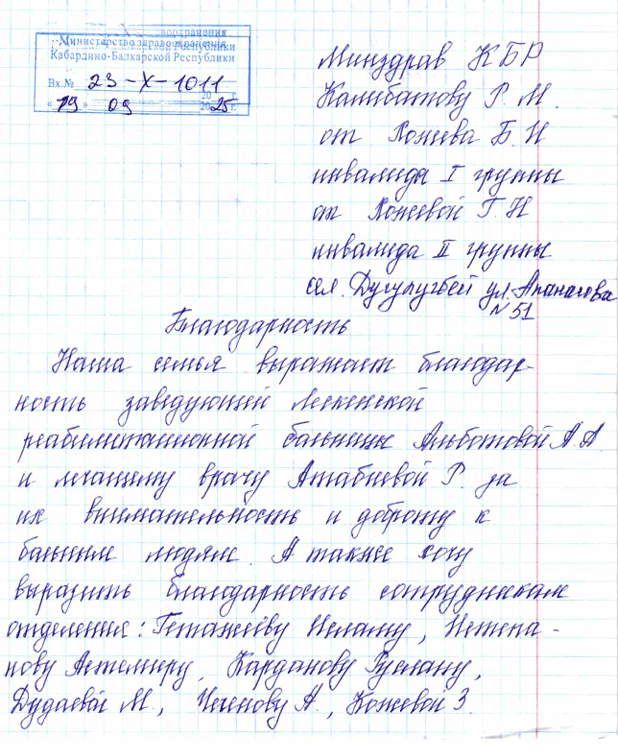 воохранения
Министерство здравоохранения
Республики
Кабардино-Балкарской Республики
Вх.№ 23-Х-1011
" 19 " 09 2025 г.
Минздрав КБР
Калибатову Р. М.
от Кожева Б. Н
инвалида I группы
от Кожевой Г. Н
инвалида II группы
сел. Дугулугбей ул. Апанасова
№ 51
Благодарность
Наша семья выражает благодар-
ность заведующей Лескенской
реабилитационной больницы Альботовой А. А.
и лечащему врачу Атабиевой Р. за
их внимательность и доброту к
больным людям. А также хочу
выразить благодарность сотрудникам
отделения: Гетажееву Исламу,
нову Астемиру, Карданову Руслану,
Дудаевой М., Чеченову А., Кожевой З.